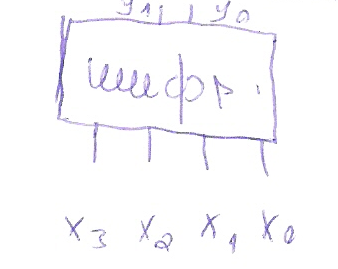 y₁ y₀
шифр.
x₃ x₂ x₁ x₀